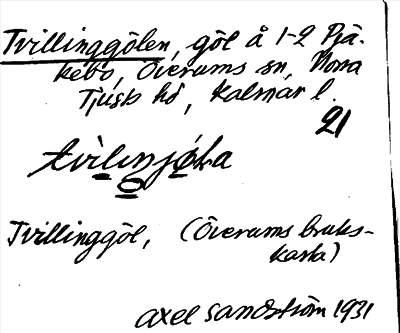 Tvillinggölen, göl å 1-2 Pjä-
kebo, Överums sn, Norra
Tjusts hd, Kalmar l.
21
Tvillinggöl, (Överums bruks-
karta)
Axel Sandström 1931